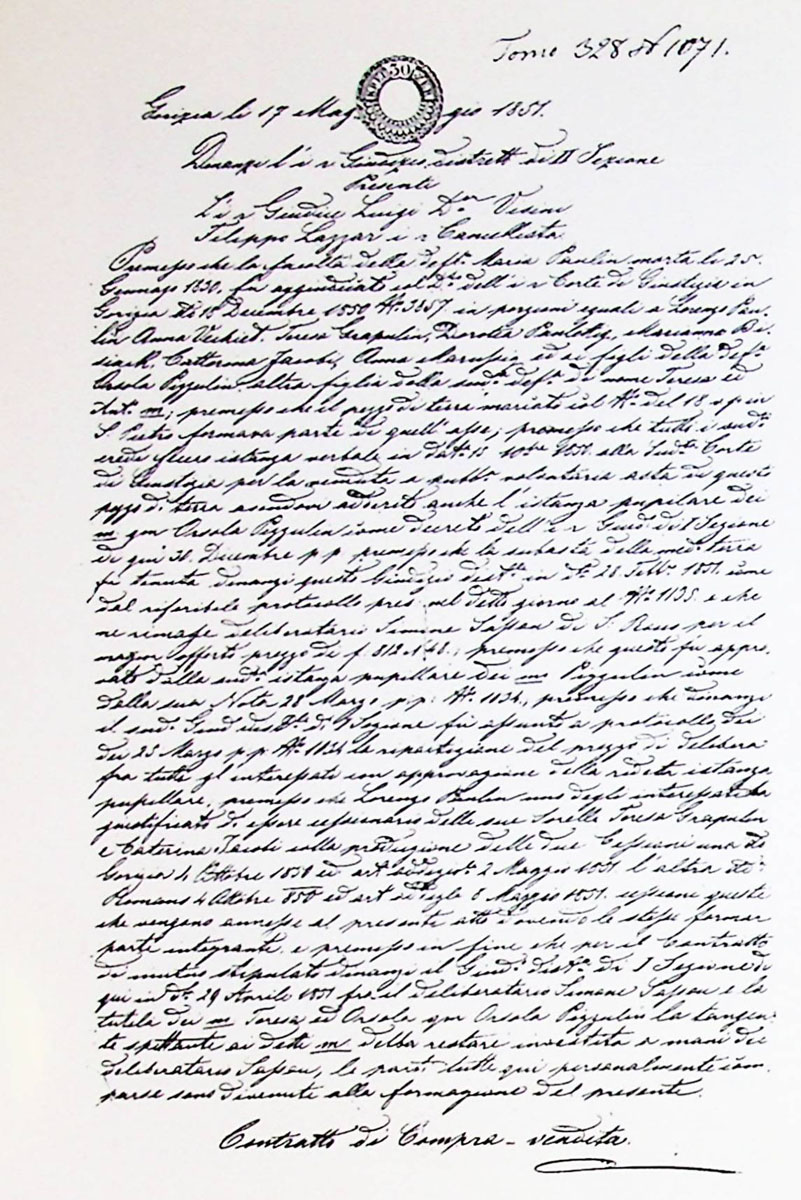 Tomo 328 N 1071.
30
Gorizia li 17 Maggio 1851.
Dinanzi l'i r Giudizio distrett. di II Sezione
Presenti
L'i r Giudice Luigi D.or Visini
Filippo Lazzar i r Cancellista
Premesso che la facoltà della def.ta Maria Paulin morta li 25
Gennajo 1830, fu aggiudicata col D.to dell'i r Corte di Giustizia in
Gorizia 18 Decembre 1850 N.o 3357 in porzioni eguali a Lorenzo Pau
lin Anna Teresa Grapulin, Dorotta Marianna Bi
siach, Catterina Jacobi, Anna Marussig ed ai figli della def.ta
Orsola Pizzulin altra figlia della sud.ta def.ta di nome Teresa ed
m; premesso che il pezzo di terra marcato col N.o del 18 in
S. Pietro formava parte di quell' asse; premesso che tutti i sud.ti
eredi fecero istanza verbale in dat.o 15 10bre 1850 alla Sud.ta Corte
di Giustizia per la vendita a pubb.a volontaria asta di questo
pezzo di terra anche l'istanza pupilare dei
m qm Orsola Pizzulin come decreto dell'i r Giud. di I Sezione
di qui 30. Decembre p p premesso che la subasta della med.a terra
fu tenuta dinanzi questo Giudizio dist.le in d.to 28 Febb.o 1851. come
dal riferibile protocollo pres. nel detto giorno al N.o 1135. e che
ne rimase deliberatario Simone Sassau di S. per il
maggior offerto prezzo di f. 812.; premesso che questo fu appro
vato dalla sud.ta istanza pupillare dei m Pizzulin come
dalla sua Nota 28 Marzo p.p. N.o 1834, premesso che dinanzi
il sud.o Giudizio di I Sezione fu assunto a protocollo dei
dei 23 Marzo p.p N.o 1834 la ripartizione del prezzo di delibera
fra tutti gl'interessati con approvazione della istanza
pupillare, premesso che Lorenzo Paulin uno degli interessati ha
giustificato di essere cessionario delle sue Sorelle Teresa Grapulin
e Caterina Jacobi colla produzione delle due Cessioni una
Gorizia 4 Ottobre 1850 ed 2 Maggio 1851. l'altra
Romans 4 Ottobre 850 ed 8 Maggio 1851. cessioni queste
che vengono annesse al presente atto dovendo le stesse formar
parte integrante, e premesso in fine che per il Contratto
di mutuo stipulato dinanzi il Giud.o dist.le di I Sezione di
qui in d.to 29 Aprile 1851 fra il deliberatario Simone Sassau e la
tutela dei m Teresa ed Orsola qm Orsola Pizzulin la tangen
te spettante ai detti m debba restare investita a mani del
deliberatario Sassau, le parti tutte qui personalmente com
parse sono divenute alla formazione del presente.
Contratto di Compra-vendita.